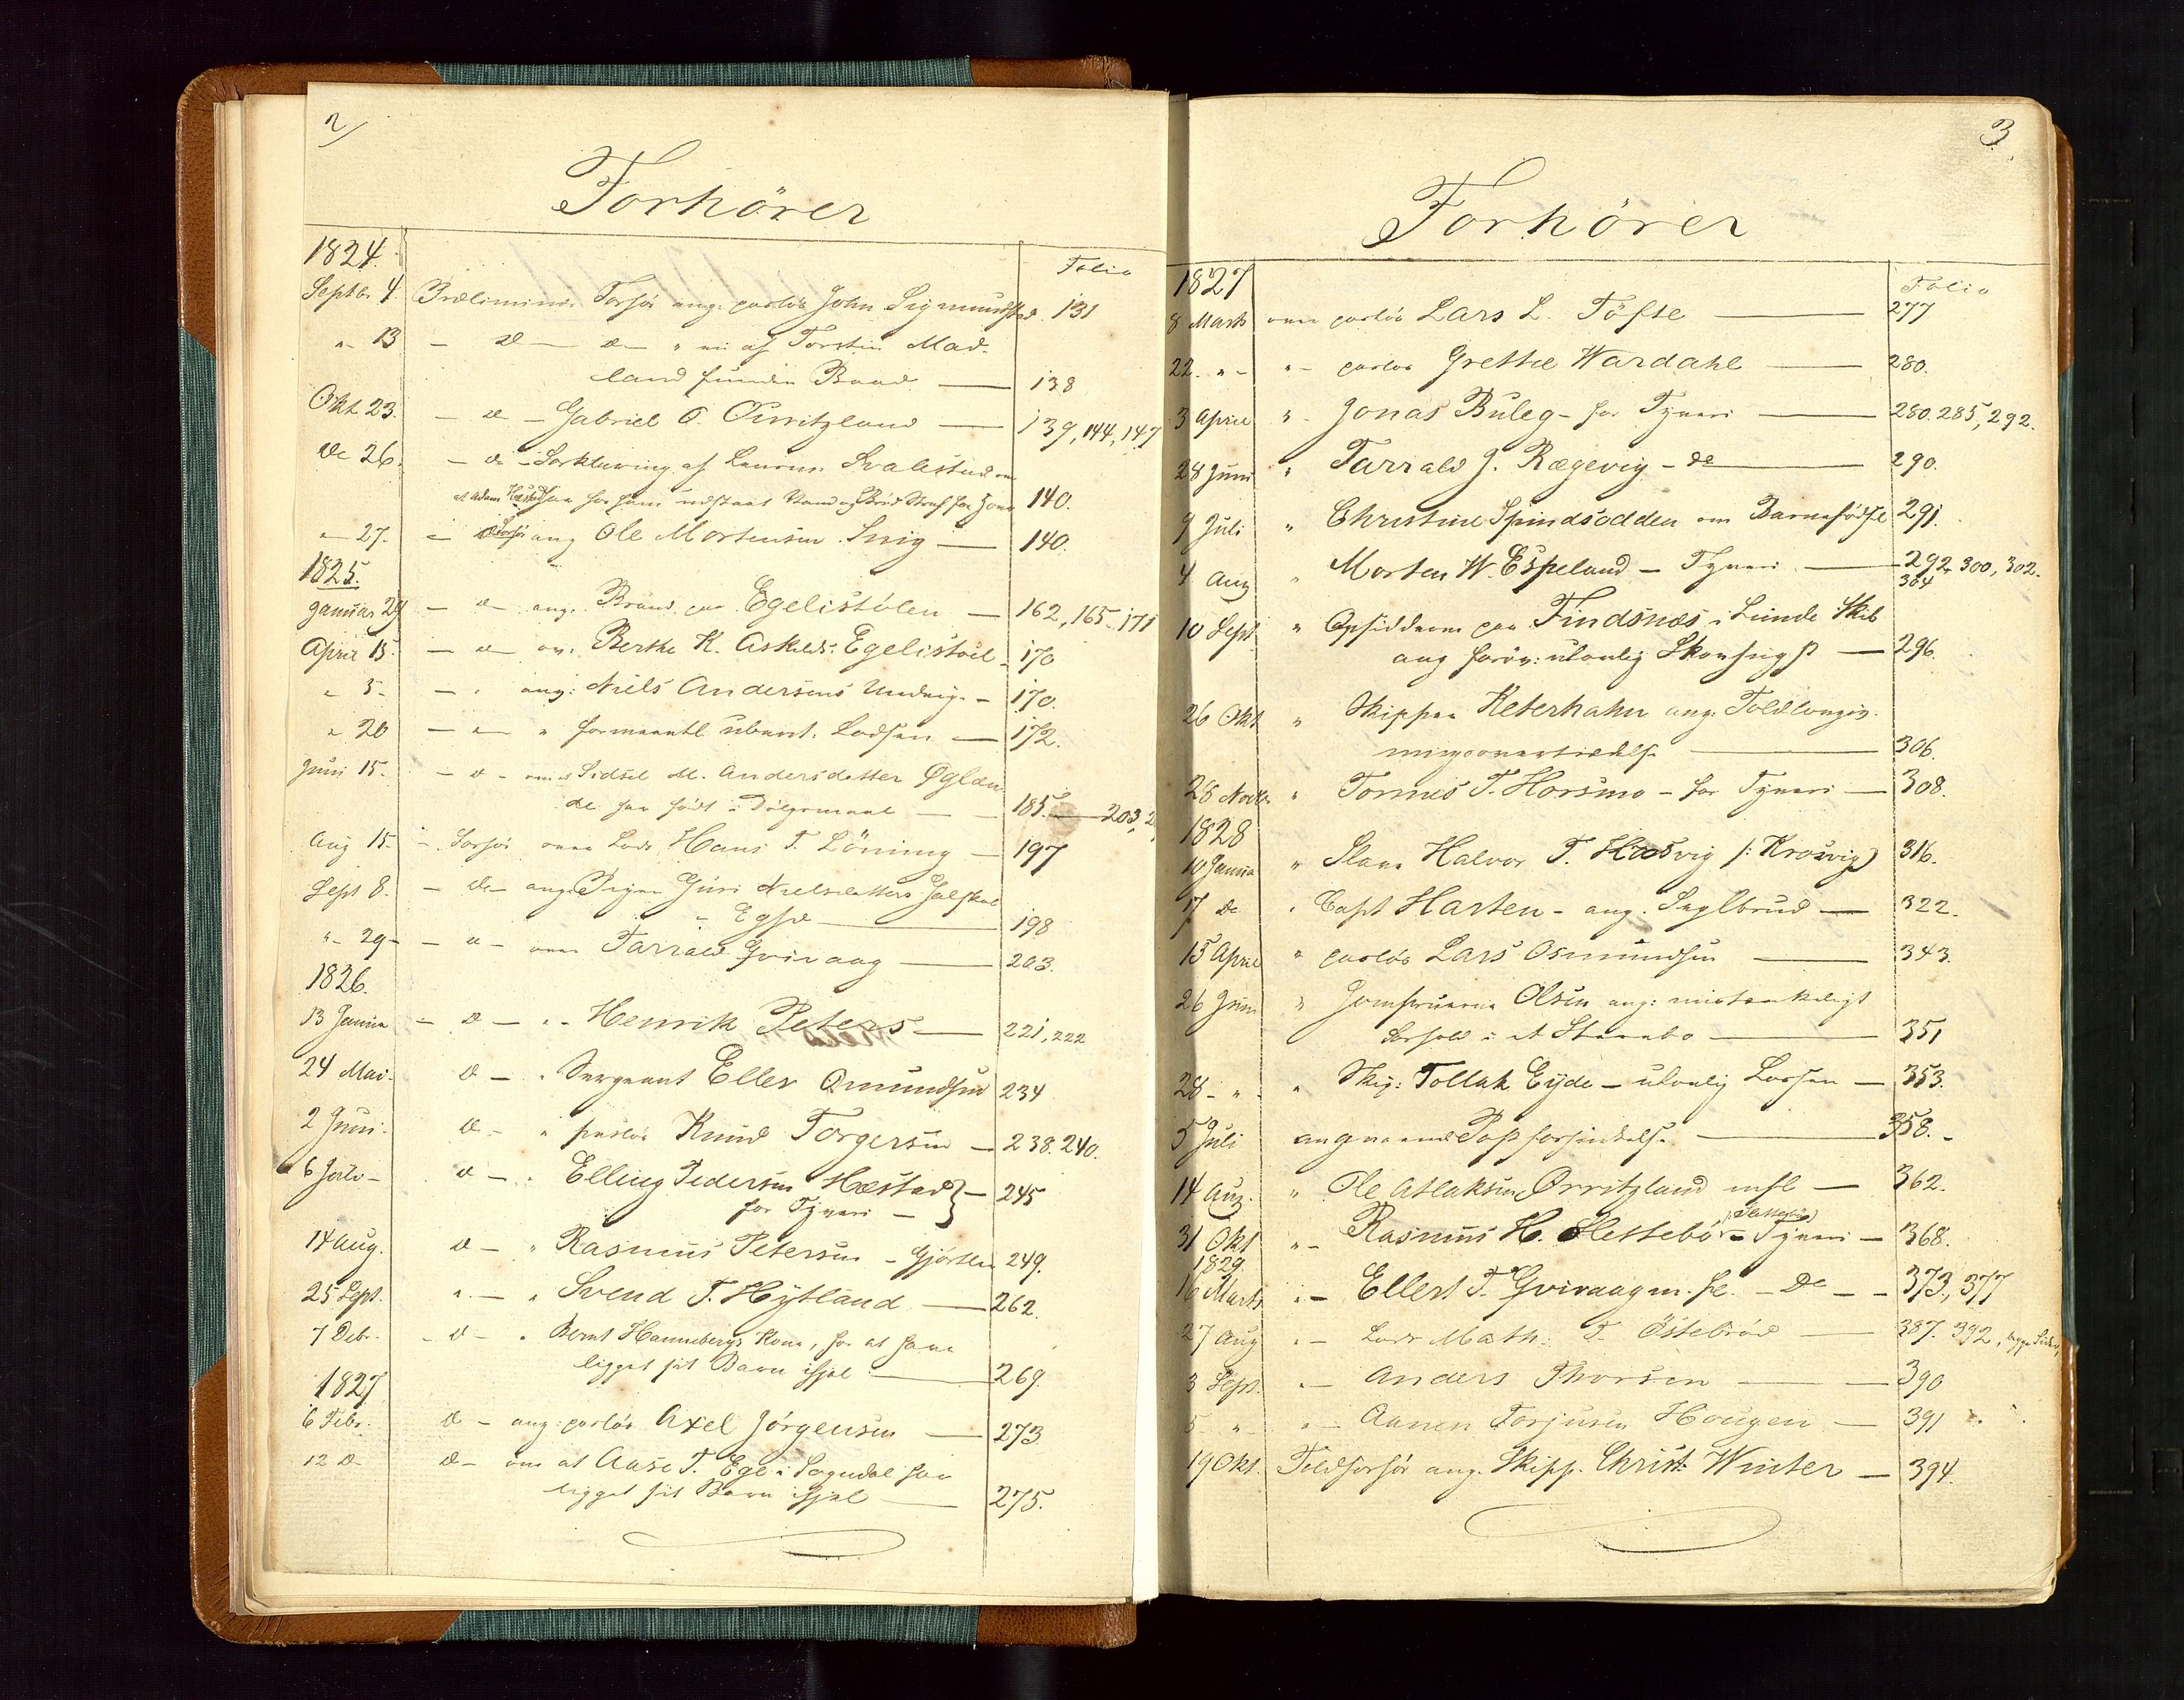 2/
Forhörer
1824.
Folio
Septbr 4. Prælimin. Forhör ang. John Sigmundsted. 131
" 13 - D - D - " af Torstin Mad-
land funden Baad — 138
Okt. 23. - D - Gabriel O. Ourritzland — 139, 144, 147
De 26. - D - Forklaring af Svalestad om
at Adam for ham udstaaet Vand og Brød Straf 140.
" 27. - D Forhör ang Ole Mortensen Svig — 140.
1825.
Januar 29 - D - ang. Brand paa Egelistölen — 162, 165, 171
April 15. - D - ov. Berthe K. Askilds. Egelistoel - 170
" 5 - - " ang: Niels Andersens - 170.
" 20 - " - " formeentl. uberet. Lodsen — 172.
Juni 15. - D - om at Sidsel M. Andersdatter Øglæn
de har født i Dølgsmaal — 185. — 203, 2
Aug 15. - Forhör over Lods Hans T. Löning — 197
Sept 8. - De ang. Pigen Guri Nielsdatters
" Egse — 198
" 29 - - D - over Tarrald Gvivaag — 203.
1826.
13 Januar - D - " - Henrik Peters — 221, 222
24 Mai - D - " Sergeant Eller Omundsen 234
2 Juni - D - " Knud Torgersen — 238. 240.
6 Juli - D - " Elling Pedersen Hæstad } - 245
for Tyveri -
14 Aug. D - " Rasmus Petersen - 249.
25 Sept. " - " Svend T. Hytland — 262.
7 Debr. - D - " Bernt Hannebergs Kone, for at have
ligget sit Barn ihjel — 269.
1827
6 Febr. D - ang: Axel Jörgensen — 273
12 D D - om at Aase T. Ege i Sogndal har
ligget sit Barn ihjel — 275.
3.
Forhörer
1827
Folio
8 Marts over Lars L. Töfte — 277
22. " - " - Grethe Wardahl — 280.
3 April " - Jonas Buleg - for Tyveri — 280. 285, 292.
28 Juni " Tarrald J. Rægevig - do — 290.
9 Juli " Christine Spindsodden om Barnefödsel 291.
4 Aug " Morten W. Espeland - Tyveri — 292, 300, 302.
304
10 Sept. " Opsidderne paa Findsnæs i Lunde Skib
ang ulovlig Skovhugst — 296.
26 Okt " Skipper Keterhahn ang. Toldlovgiv-
ningsovertrædelse — 306.
28 Novbr " Tönnes T. Horsmo - for Tyveri — 308.
1828
10 Januar " Slave Halvor T. Krosvig /: Krosvig) 316.
17 De " Capt Harten - ang. Seglbrud — 322.
15 April " Lars Osmundsen — 343.
26 Juni " Jomfruerne Olsen ang: mistænkeligt
Forhold i et Stervbo — 351
28 - " - " Tollak Eyde - ulovlig Lossen — 353.
5 Juli angaaende Post forsinkelse — 358. -
14 Aug. " Ole Atlaksen Ørritzland — 362.
31 Okt " - Rasmus H. Slettebö - Tyveri — 368.
1829.
16 Marts " - Ellert T. Gvivaag m. fl. - De - - 373, 377
27 Aug " - Lods Math: T. Östebröd — 387. 392,
3 Sept. " - Anders Thorsen — 390
5 " " - Aanen Torjusen Hougen — 391
19 Okt. Toldforhör ang. Skipp. Christ: Winter — 394.